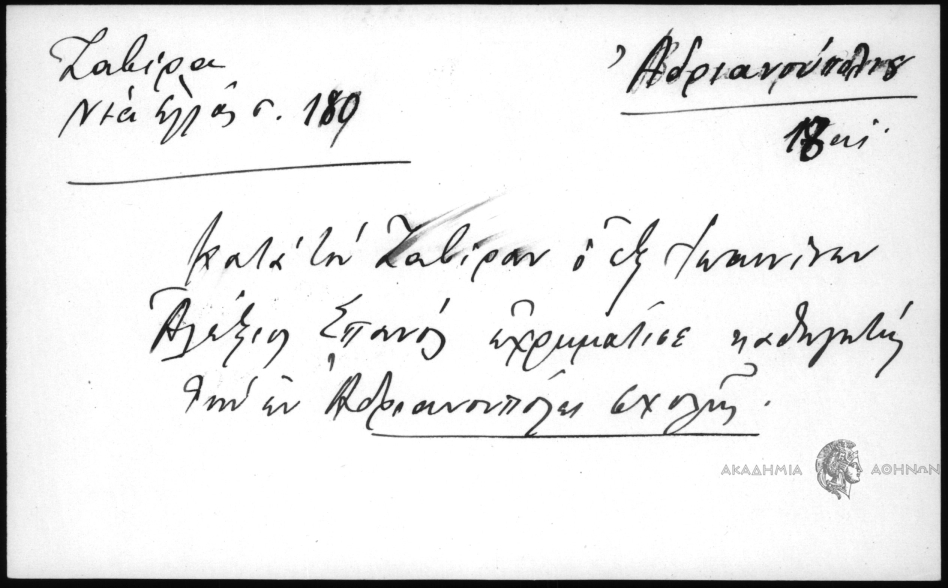 Ζαβίρα
Νέα Ἑλλάς σ. 180
Ἀδριανούπολις
18 αἰ.
Κατά τόν Ζαβίραν ὁ ἐξ Ἰωαννίνων
Ἀλέξιος Σπανός ἐχρημάτισε καθηγητής
τῆς ἐν Ἀδριανουπόλει σχολῆς.
ΑΚΑΔΗΜΙΑ ΑΘΗΝΩΝ